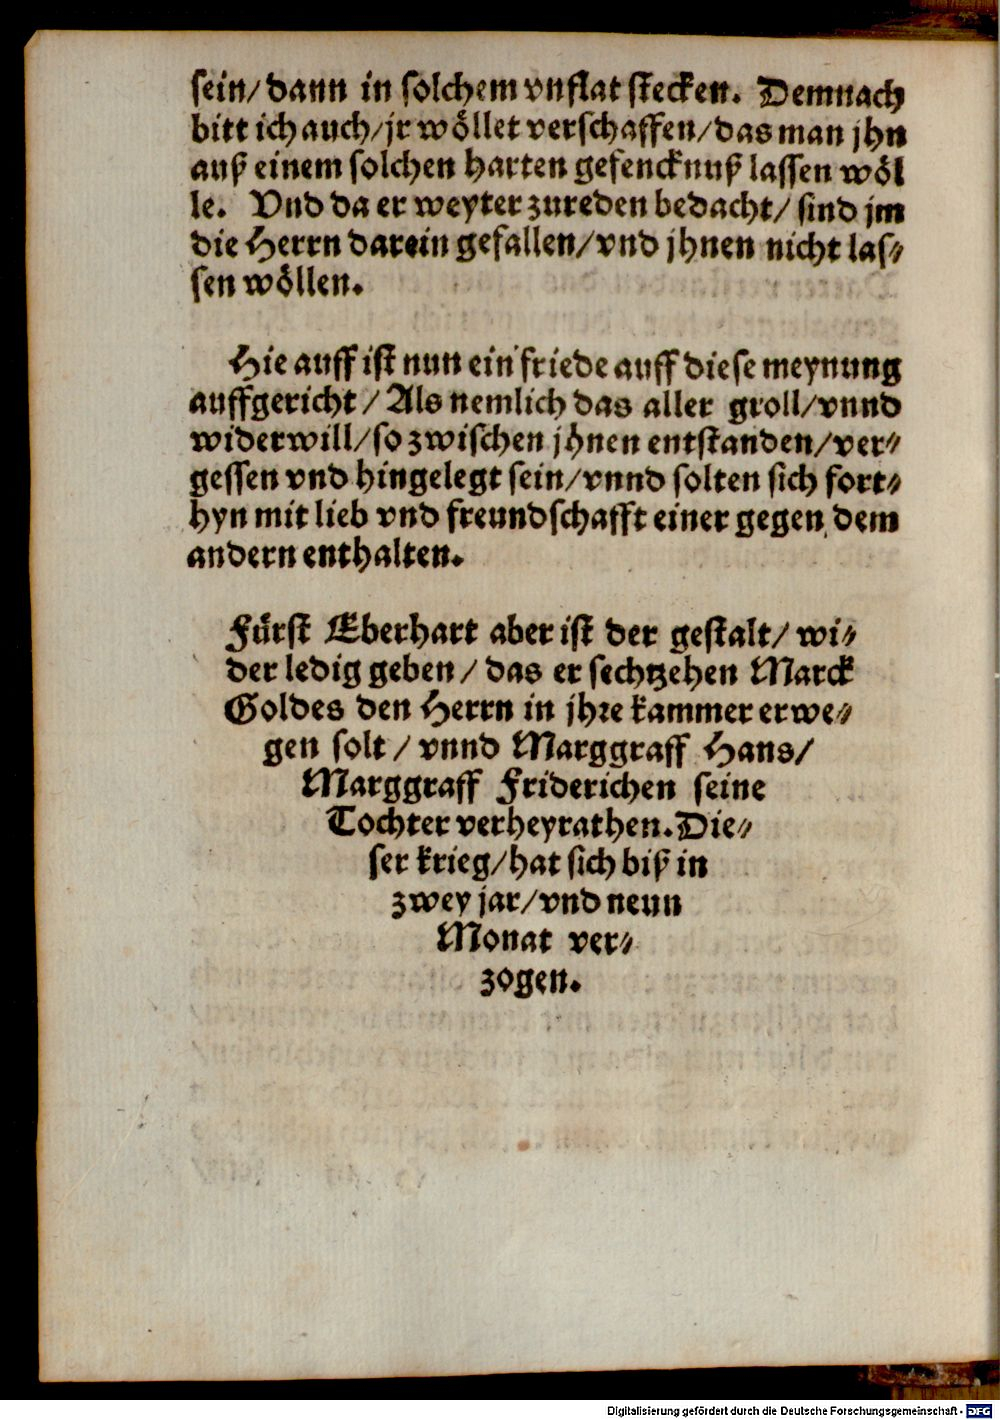 sein/ dann in solchem vnflat stecken. Demnach
bitt ich auch/ jr wöllet verschaffen/ das man jhn
auß einem solchen harten gefencknuß lassen wöl
le. Vnd da er weyter zureden bedacht/ sind jm
die Herrn darein gefallen/ vnd jhnen nicht las⸗
sen wöllen.
Hie auff ist nun ein friede auff diese meynung
auffgericht/ Als nemlich das aller groll/ vnnd
widerwill/ so zwischen jhnen entstanden/ ver⸗
gessen vnd hingelegt sein/ vnnd solten sich fort⸗
hyn mit lieb vnd freundschafft einer gegen dem
andern enthalten.
Fürst Eberhart aber ist der gestalt/ wi⸗
der ledig geben/ das er sechtzehen Marck
Goldes den Herrn in jhre kammer erwe⸗
gen solt/ vnnd Marggraff Hans/
Marggraff Friderichen seine
Tochter verheyrathen. Die⸗
ser krieg/ hat sich biß in
zwey jar/ vnd neun
Monat ver⸗
zogen.
Digitalisierung gefördert durch die Deutsche Forschungsgemeinschaft - DFG